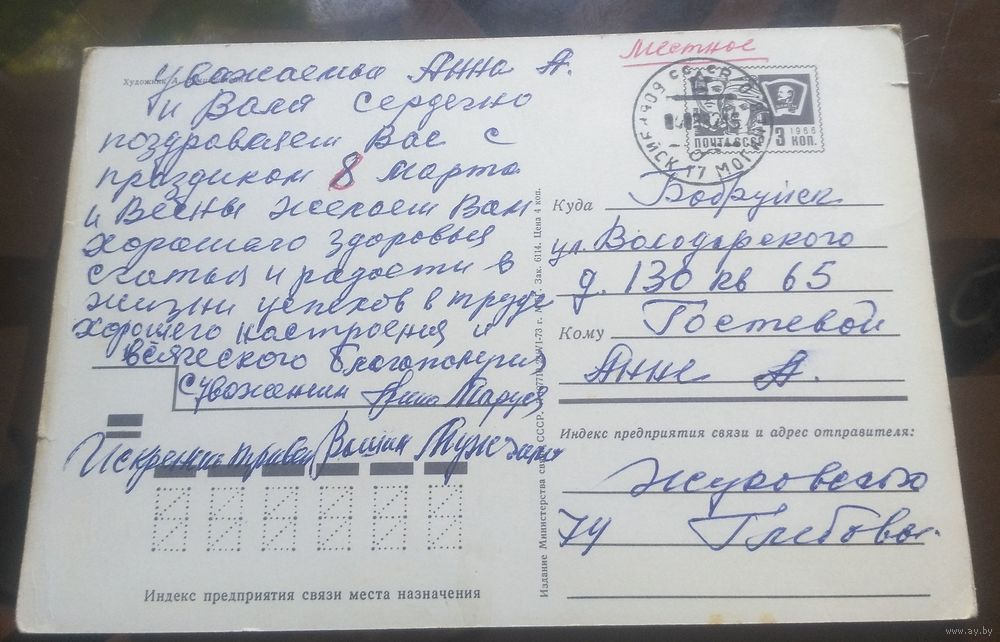 Художник А.
Местное
Уважаемые Анна А.
и Валя Сердечно
поздравляем Вас с
праздиком 8 марта
и Весны желаем Вам
хорошаго здоровья
счатья и радости в
жизни успехов в труде
хорошего настроения и
всяческого благополучия
с уважением Нина
Искренни привет Вашим Мужьям
БОБРУЙСК 17 МОГИЛ
ПОЧТА СССР
1966
3 КОП.
Куда Бобруйск
ул. Володарского
д. 130 кв 65
Кому Гостевой
Анне А.
Индекс предприятия связи и адрес отправителя:
Жуковского
74 Глебова
Издание Министерства связи СССР. 73 г. Зак. 6114. Цена 4 коп.
Индекс предприятия связи места назначения
www.ay.by